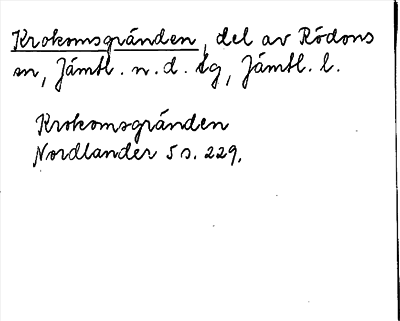 Krokomsgränden, del av Rödöns
sn, Jämtl. n. d. tg, Jämtl. l.
Krokomsgränden
Nordlander 5 s. 229.